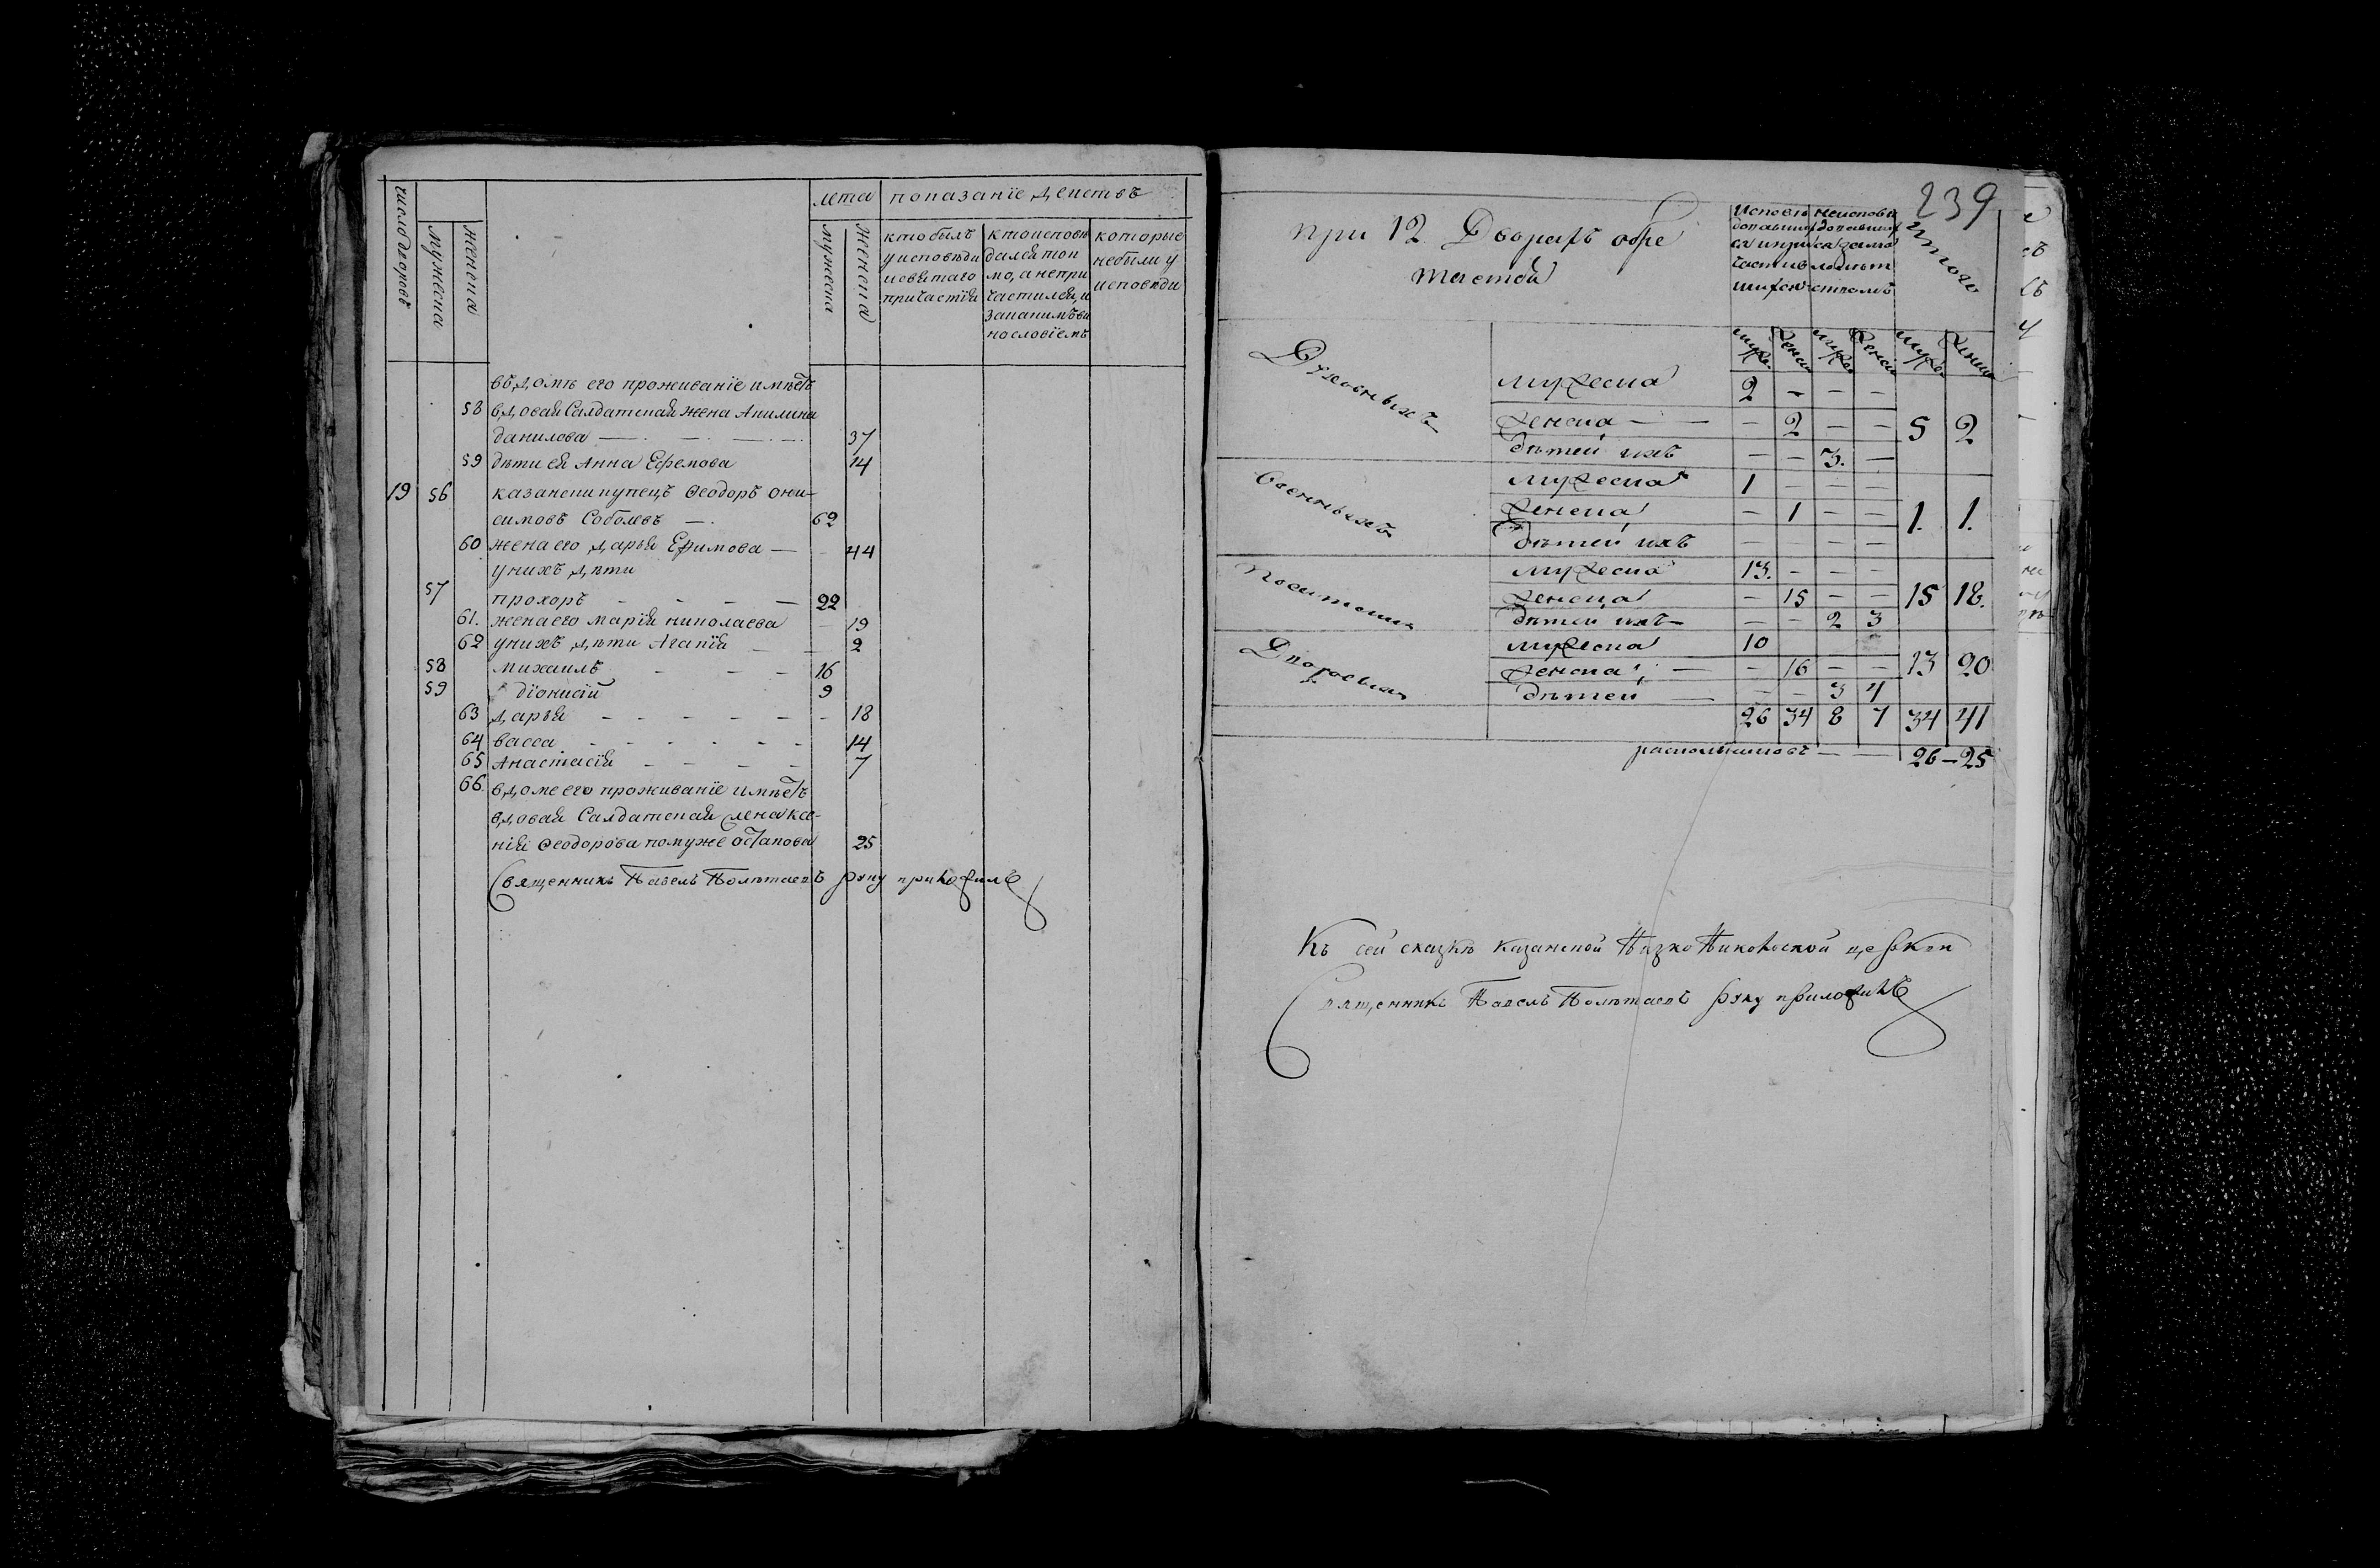 число дворовъ
мужеска
женска
лета
показанїе действъ
мужеска
женска
кто былъ
у исповѣди
и святаго
причастїя
кто исповѣ
дался ток
мо, а непри
частился, и
за каким ви
нословїемъ
которые
небыли у
исповѣди
въ домѣ его проживанїе имѣетъ
58 вдовая Салдатская жена Акилина
данилова — 37
59 дѣти ея Анна Ефремова 14
19 56 казански купецъ Ѳеодоръ они-
симовъ Соболевъ — 62
60 жена его дарья Ефимова — 44
у нихъ дѣти
57 прохоръ — 22
61. жена его марїя николаева — 19
62 у нихъ дѣти Агапїя — 2
58 михаилъ — 16
59 дїонисїй 9
63 дарья — 18
64 васса — 14
65 Анастасїя — 7
66 в доме его проживанїе имѣетъ
вдовая Салдатская жена ксе-
нїя Ѳеодорова по муже остапова 25
Священникъ Павелъ Полѣтаевъ руку приложилъ
239
при 12 Дворахъ обре
таетса
Исповѣ
довавших
ся и при
частив
шихся
неисповѣ
довавших
ся за мало
лѣт
ствомъ
итого
мужес женск мужес женск мужес женск
Духовныхъ
мужеска 2 — — —
женска — — 2 — — 5 2
дѣтей ихъ — — 3. —
военныхъ
мужеска 1 — — —
женска — 1 — — 1. 1.
дѣтей ихъ — — — —
посатских
мужеска 13. — — —
женска — 15 — — 15 18.
дѣтей ихъ — — — 2 3
Дворовых
мужеска 10
женска — — 16 — — 13 20
дѣтей — — — 3 4
26 34 8 7 34 41
раскольниковъ — — 26 — 25
Къ сей сказкѣ казанской Низко Николской церкви
Священникъ Павелъ Полѣтаевъ руку приложилъ